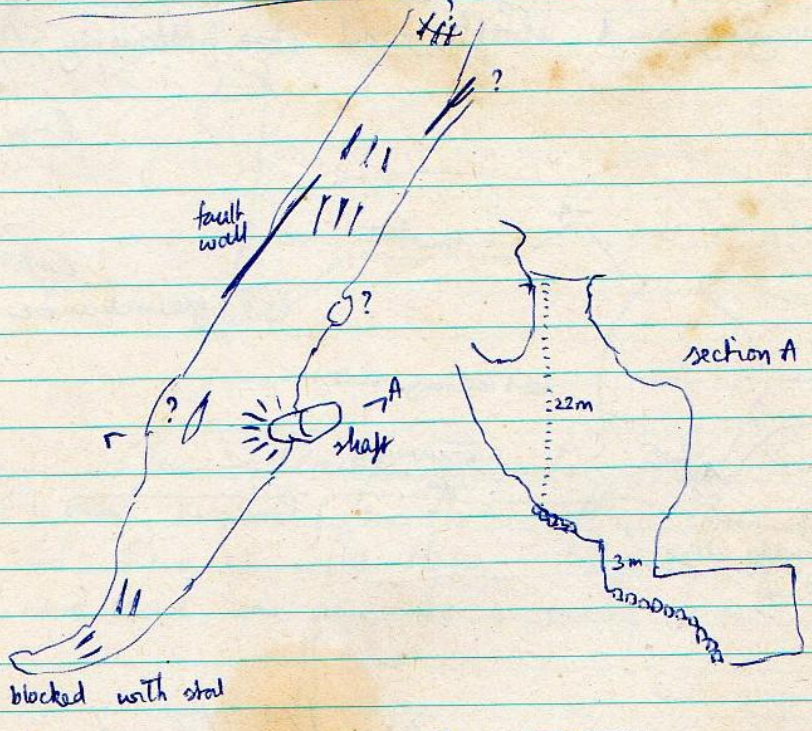 ?
?
fault
wall
?
section A
?
A
22m
shaft
3m
blocked with stal